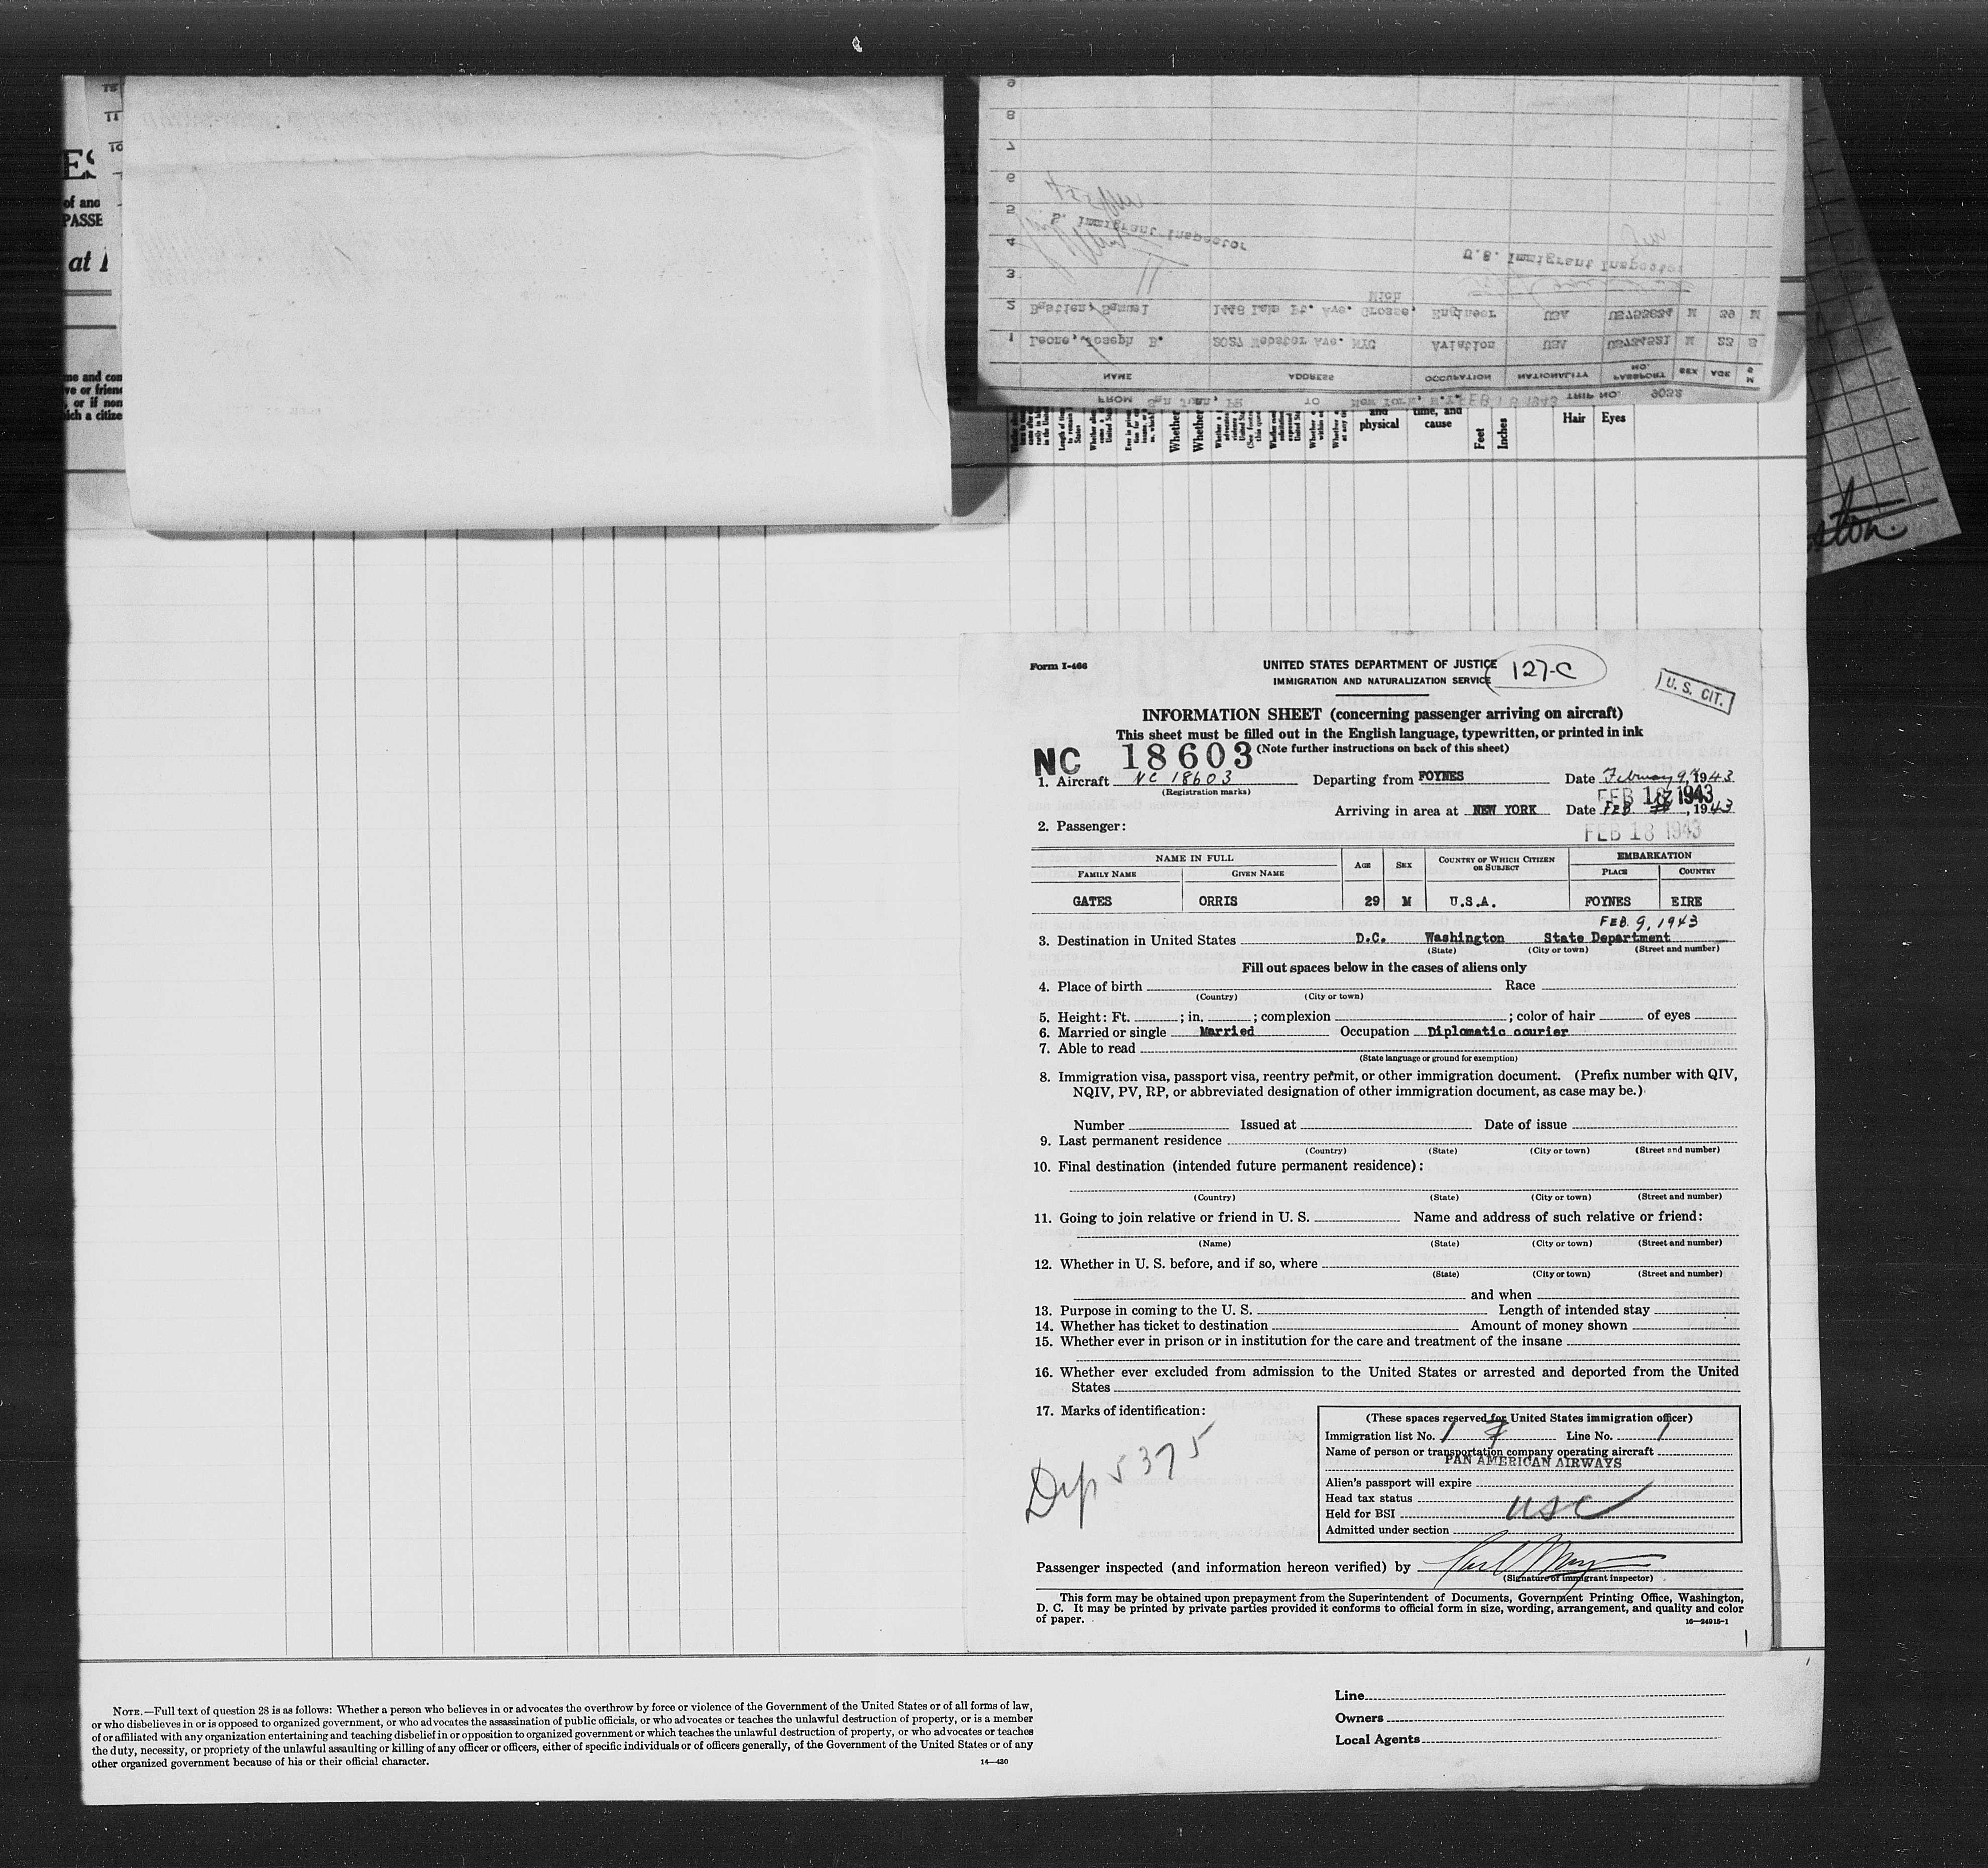 ES
of and
PASSE
at
me and con
ve or friend
, or if non
ich a citize
9
8
7
6
5
4
3
U.S. Immigrant Inspector
S. Immigrant Inspector
2 Bastien, Samuel 1448 Lake Pt. Ave. Grosse, Mich Engineer USA M 39 M
1 Leone, Joseph B. 2027 Webster Ave. NYC Aviation USA M 23 S
NAME ADDRESS OCCUPATION NATIONALITY PASSPORT NO. SEX AGE S M
FROM San Juan, PR TO New York, N.Y. FEB 18 1943 TRIP NO. 9032
Whether
Whether
and physical
time, and cause
Feet
Inches
Hair
Eyes
Form I-466
UNITED STATES DEPARTMENT OF JUSTICE
IMMIGRATION AND NATURALIZATION SERVICE
127-C
U. S. CIT.
INFORMATION SHEET (concerning passenger arriving on aircraft)
This sheet must be filled out in the English language, typewritten, or printed in ink
NC 18603 (Note further instructions on back of this sheet)
1. Aircraft NC 18603 Departing from FOYNES Date February 9, 1943
(Registration marks)
FEB 18 1943
Arriving in area at NEW YORK Date FEB , 1943
2. Passenger:
FEB 18 1943
NAME IN FULL AGE SEX COUNTRY OF WHICH CITIZEN OR SUBJECT EMBARKATION
FAMILY NAME GIVEN NAME PLACE COUNTRY
GATES ORRIS 29 M U.S.A. FOYNES EIRE
FEB. 9, 1943
3. Destination in United States D.C. Washington State Department
(State) (City or town) (Street and number)
Fill out spaces below in the cases of aliens only
4. Place of birth Race
(Country) (City or town)
5. Height: Ft. ; in. ; complexion ; color of hair of eyes
6. Married or single Married Occupation Diplomatic courier
7. Able to read
(State language or ground for exemption)
8. Immigration visa, passport visa, reentry permit, or other immigration document. (Prefix number with QIV,
NQIV, PV, RP, or abbreviated designation of other immigration document, as case may be.)
Number Issued at Date of issue
9. Last permanent residence
(Country) (State) (City or town) (Street and number)
10. Final destination (intended future permanent residence):
(Country) (State) (City or town) (Street and number)
11. Going to join relative or friend in U. S. Name and address of such relative or friend:
(Name) (State) (City or town) (Street and number)
12. Whether in U. S. before, and if so, where
(State) (City or town) (Street and number)
and when
13. Purpose in coming to the U. S. Length of intended stay
14. Whether has ticket to destination Amount of money shown
15. Whether ever in prison or in institution for the care and treatment of the insane
16. Whether ever excluded from admission to the United States or arrested and deported from the United
States
17. Marks of identification:
Dip 5375
(These spaces reserved for United States immigration officer)
Immigration list No. 1 7 Line No. 1
Name of person or transportation company operating aircraft
PAN AMERICAN AIRWAYS
Alien's passport will expire
Head tax status
Held for BSI usc
Admitted under section
Passenger inspected (and information hereon verified) by
(Signature of immigrant inspector)
This form may be obtained upon prepayment from the Superintendent of Documents, Government Printing Office, Washington,
D. C. It may be printed by private parties provided it conforms to official form in size, wording, arrangement, and quality and color
of paper.
16—24915-1
NOTE.—Full text of question 28 is as follows: Whether a person who believes in or advocates the overthrow by force or violence of the Government of the United States or of all forms of law,
or who disbelieves in or is opposed to organized government, or who advocates the assassination of public officials, or who advocates or teaches the unlawful destruction of property, or is a member
of or affiliated with any organization entertaining and teaching disbelief in or opposition to organized government or which teaches the unlawful destruction of property, or who advocates or teaches
the duty, necessity, or propriety of the unlawful assaulting or killing of any officer or officers, either of specific individuals or of officers generally, of the Government of the United States or of any
other organized government because of his or their official character.
14—430
Line
Owners
Local Agents